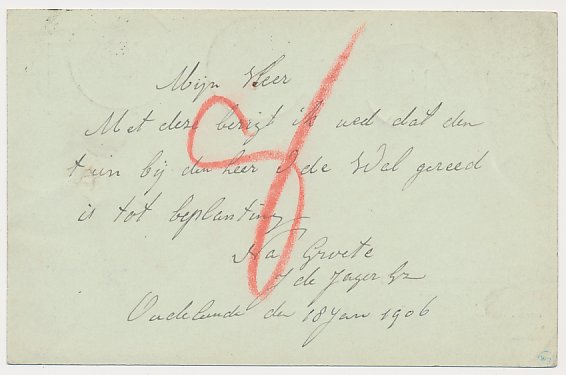 Mijn Heer
Met deze berigt ik ued dat den
tuin bij den heer J de Wal gereed
is tot beplanting
Na Groete
J de Jager Gz
Oudelande den 18 Jan 1906